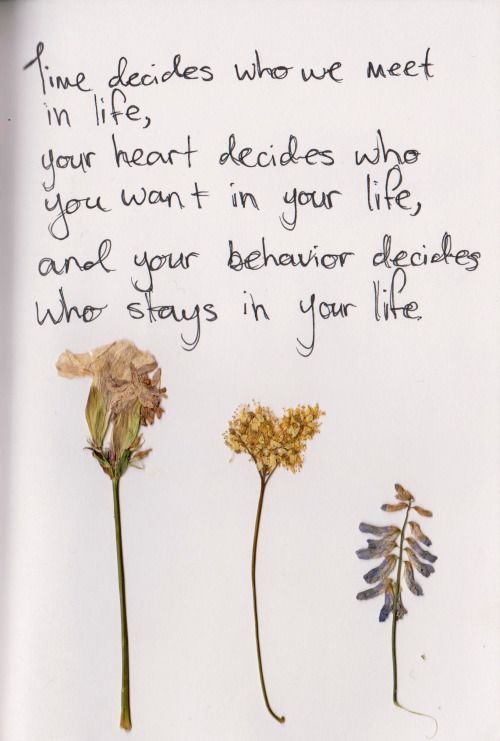 Time decides who we meet
in life,
your heart decides who
you want in your life,
and your behavior decides
who stays in your life.